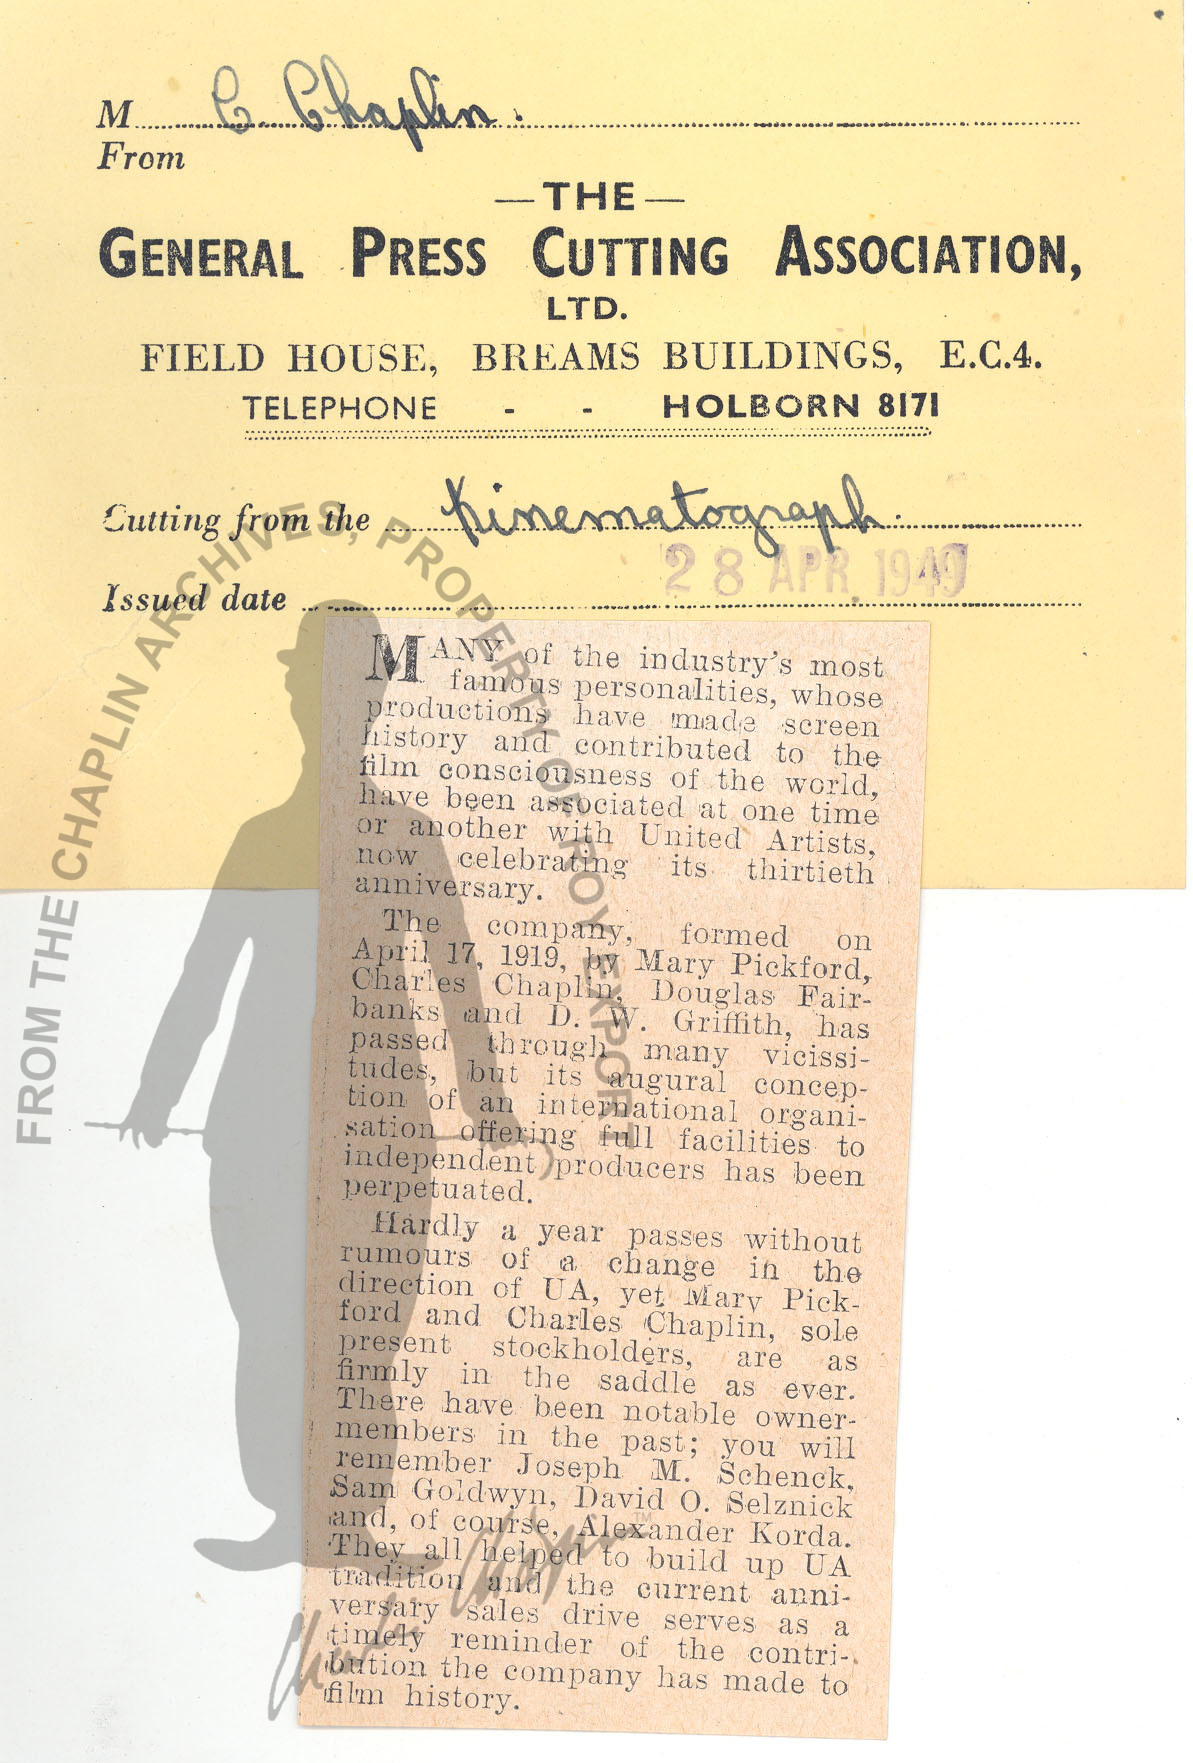 M C. Chaplin.
From
—THE—
GENERAL PRESS CUTTING ASSOCIATION,
LTD.
FIELD HOUSE, BREAMS BUILDINGS, E.C.4.
TELEPHONE - - HOLBORN 8171
Cutting from the Kinematograph.
28 APR. 1949
Issued date
MANY of the industry's most
famous personalities, whose
productions have made screen
history and contributed to the
film consciousness of the world,
have been associated at one time
or another with United Artists,
now celebrating its thirtieth
anniversary.
The company, formed on
April 17, 1919, by Mary Pickford,
Charles Chaplin, Douglas Fair-
banks and D. W. Griffith, has
passed through many vicissi-
tudes, but its augural concep-
tion of an international organi-
sation offering full facilities to
independent producers has been
perpetuated.
Hardly a year passes without
rumours of a change in the
direction of UA, yet Mary Pick-
ford and Charles Chaplin, sole
present stockholders, are as
firmly in the saddle as ever.
There have been notable owner-
members in the past; you will
remember Joseph M. Schenck,
Sam Goldwyn, David O. Selznick
and, of course, Alexander Korda.
They all helped to build up UA
tradition and the current anni-
versary sales drive serves as a
timely reminder of the contri-
bution the company has made to
film history.
FROM THE CHAPLIN ARCHIVES, PROPERTY OF ROY EXPORT
Charlie Chaplin™